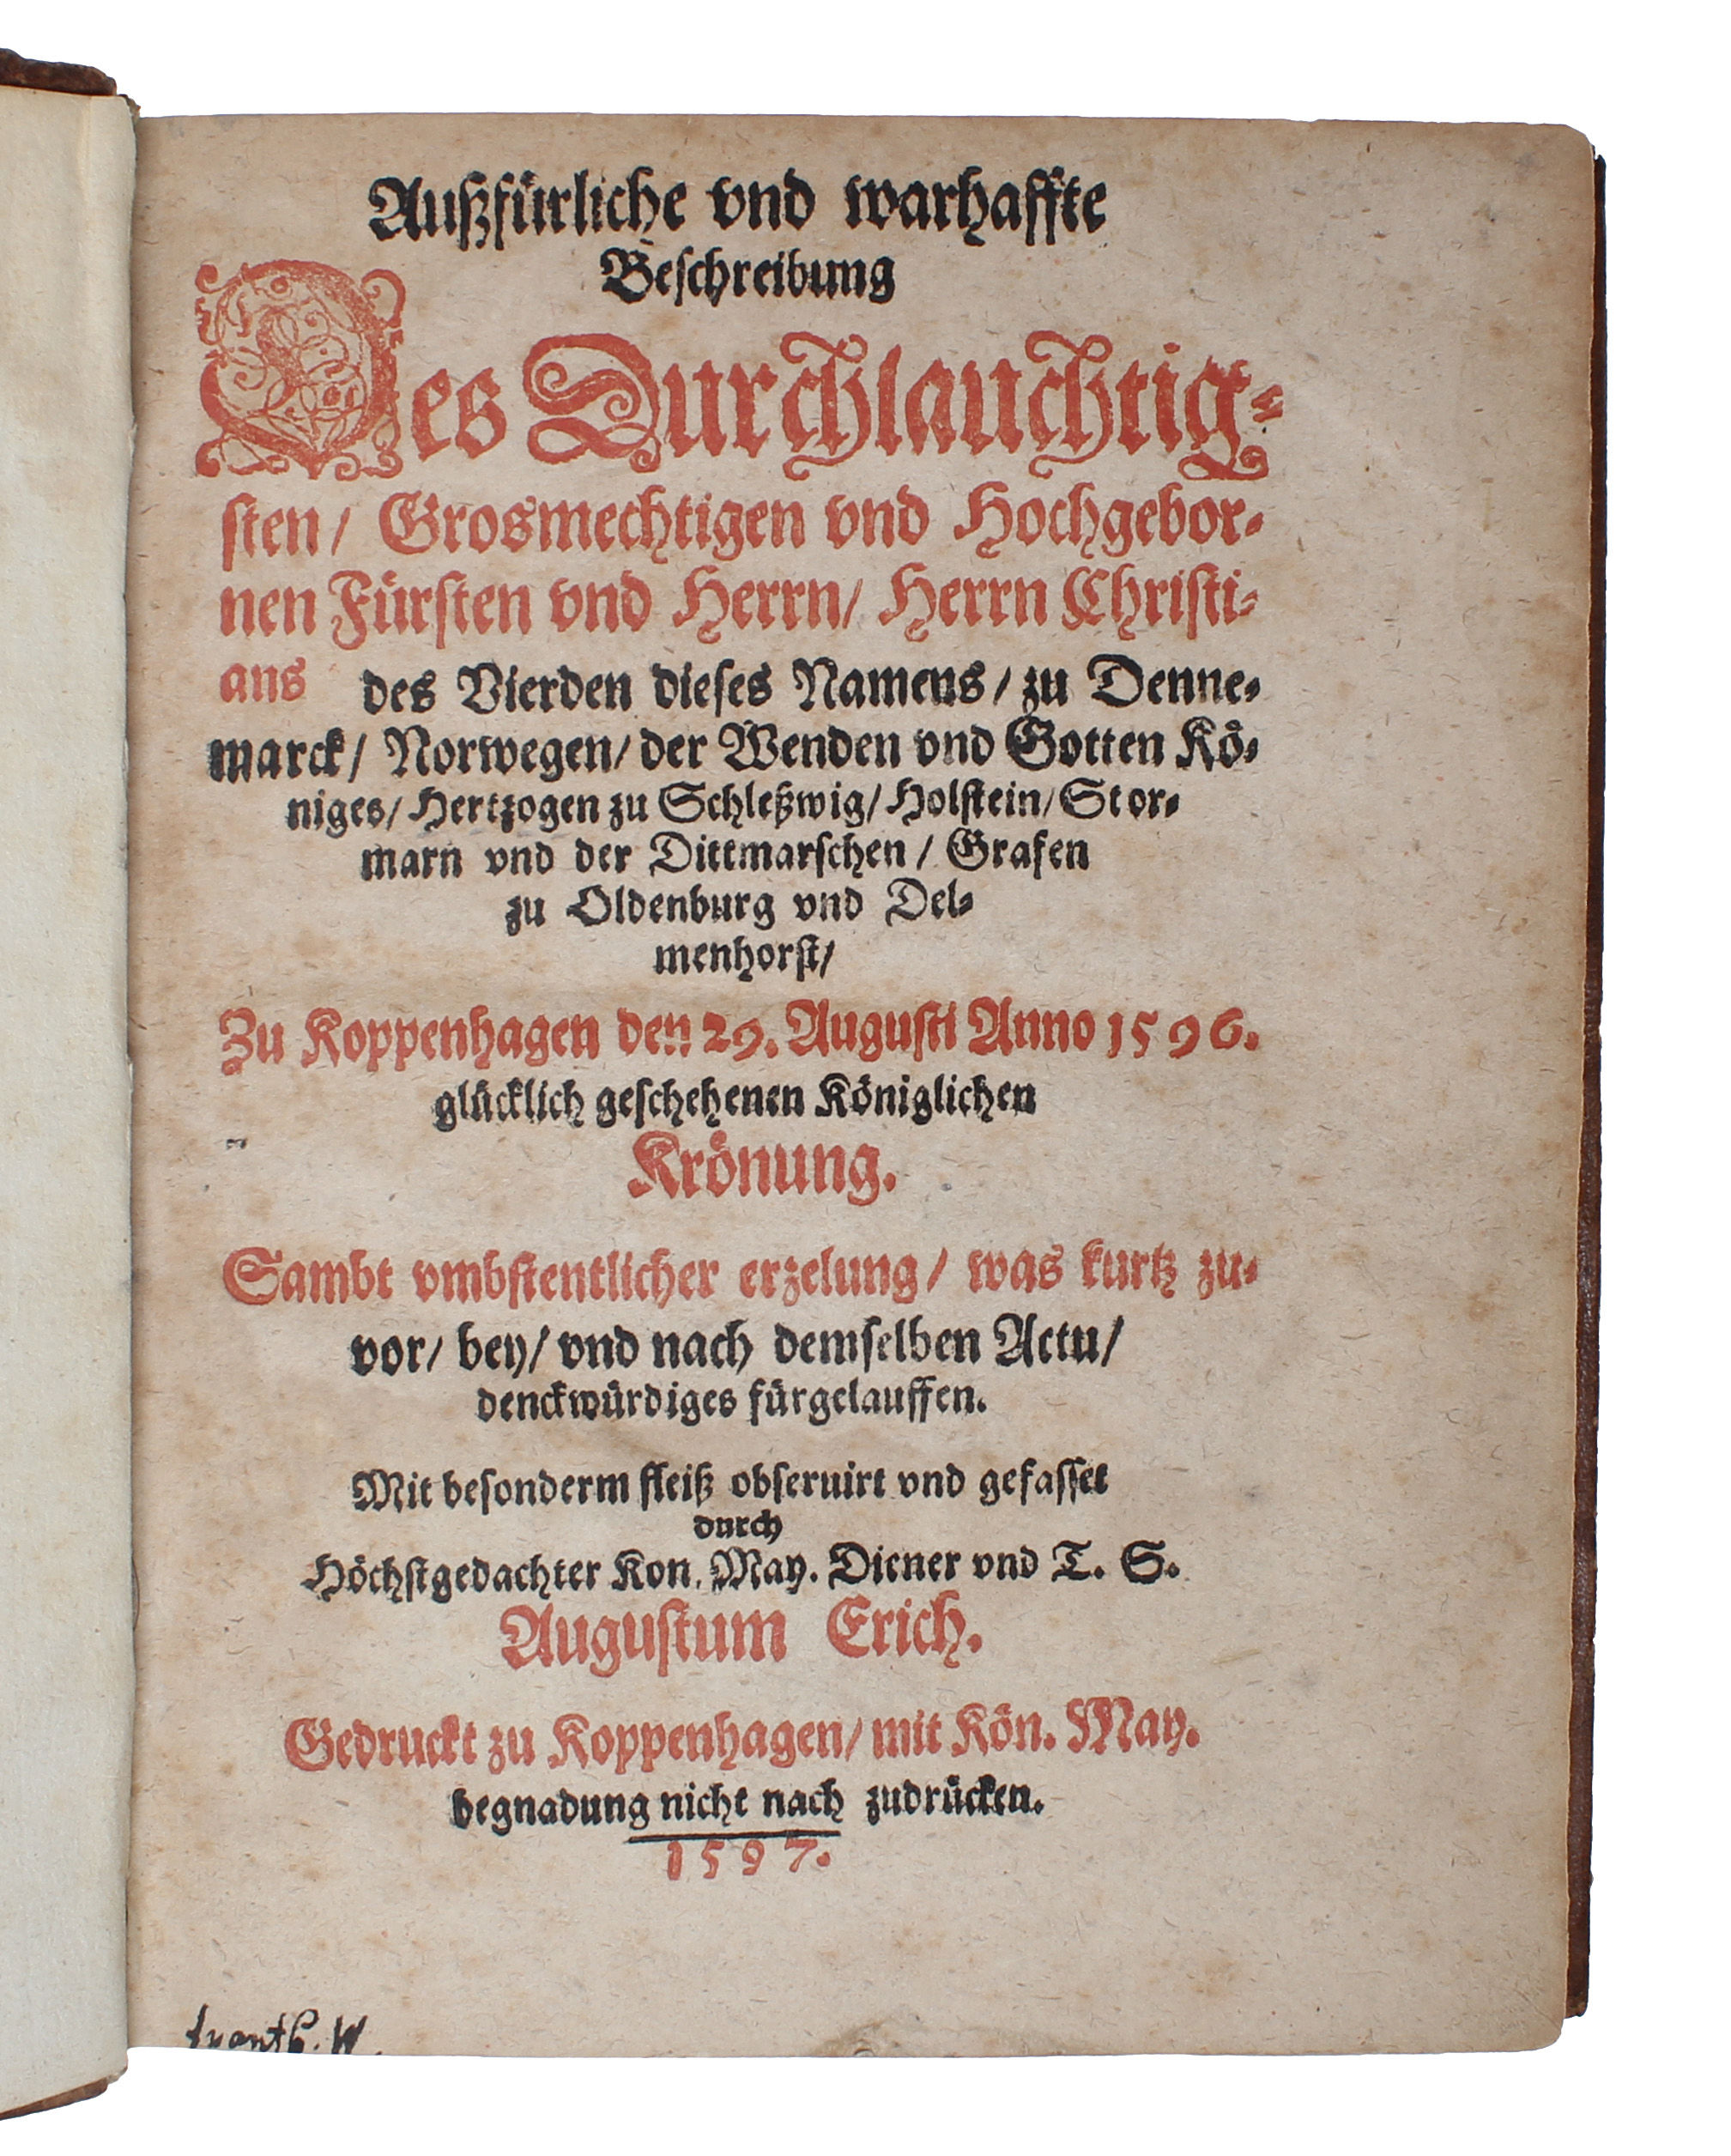 Außfürliche vnd warhaffte
Beschreibung
Des Durchlauchtig-
sten/ Grosmechtigen vnd Hochgebor-
nen Fürsten vnd Herrn/ Herrn Christi-
ans des Vierden dieses Namens/ zu Denne-
marck/ Norwegen/ der Wenden vnd Gotten Kö-
niges/ Hertzogen zu Schleßwig/ Holstein/ Stor-
marn vnd der Dittmarschen/ Grafen
zu Oldenburg vnd Del-
menhorst/
Zu Koppenhagen den 29. Augusti Anno 1596.
glücklich geschehenen Königlichen
Krönung.
Sambt vmbstentlicher erzelung/ was kurtz zu-
vor/ bey/ vnd nach demselben Actu/
denckwürdiges fürgelauffen.
Mit besonderm fleiß obseruirt vnd gefasset
durch
Höchstgedachter Kon. May. Diener vnd T. S.
Augustum Erich.
Gedruckt zu Koppenhagen/ mit Kön. May.
begnadung nicht nach zudrücken.
1597.